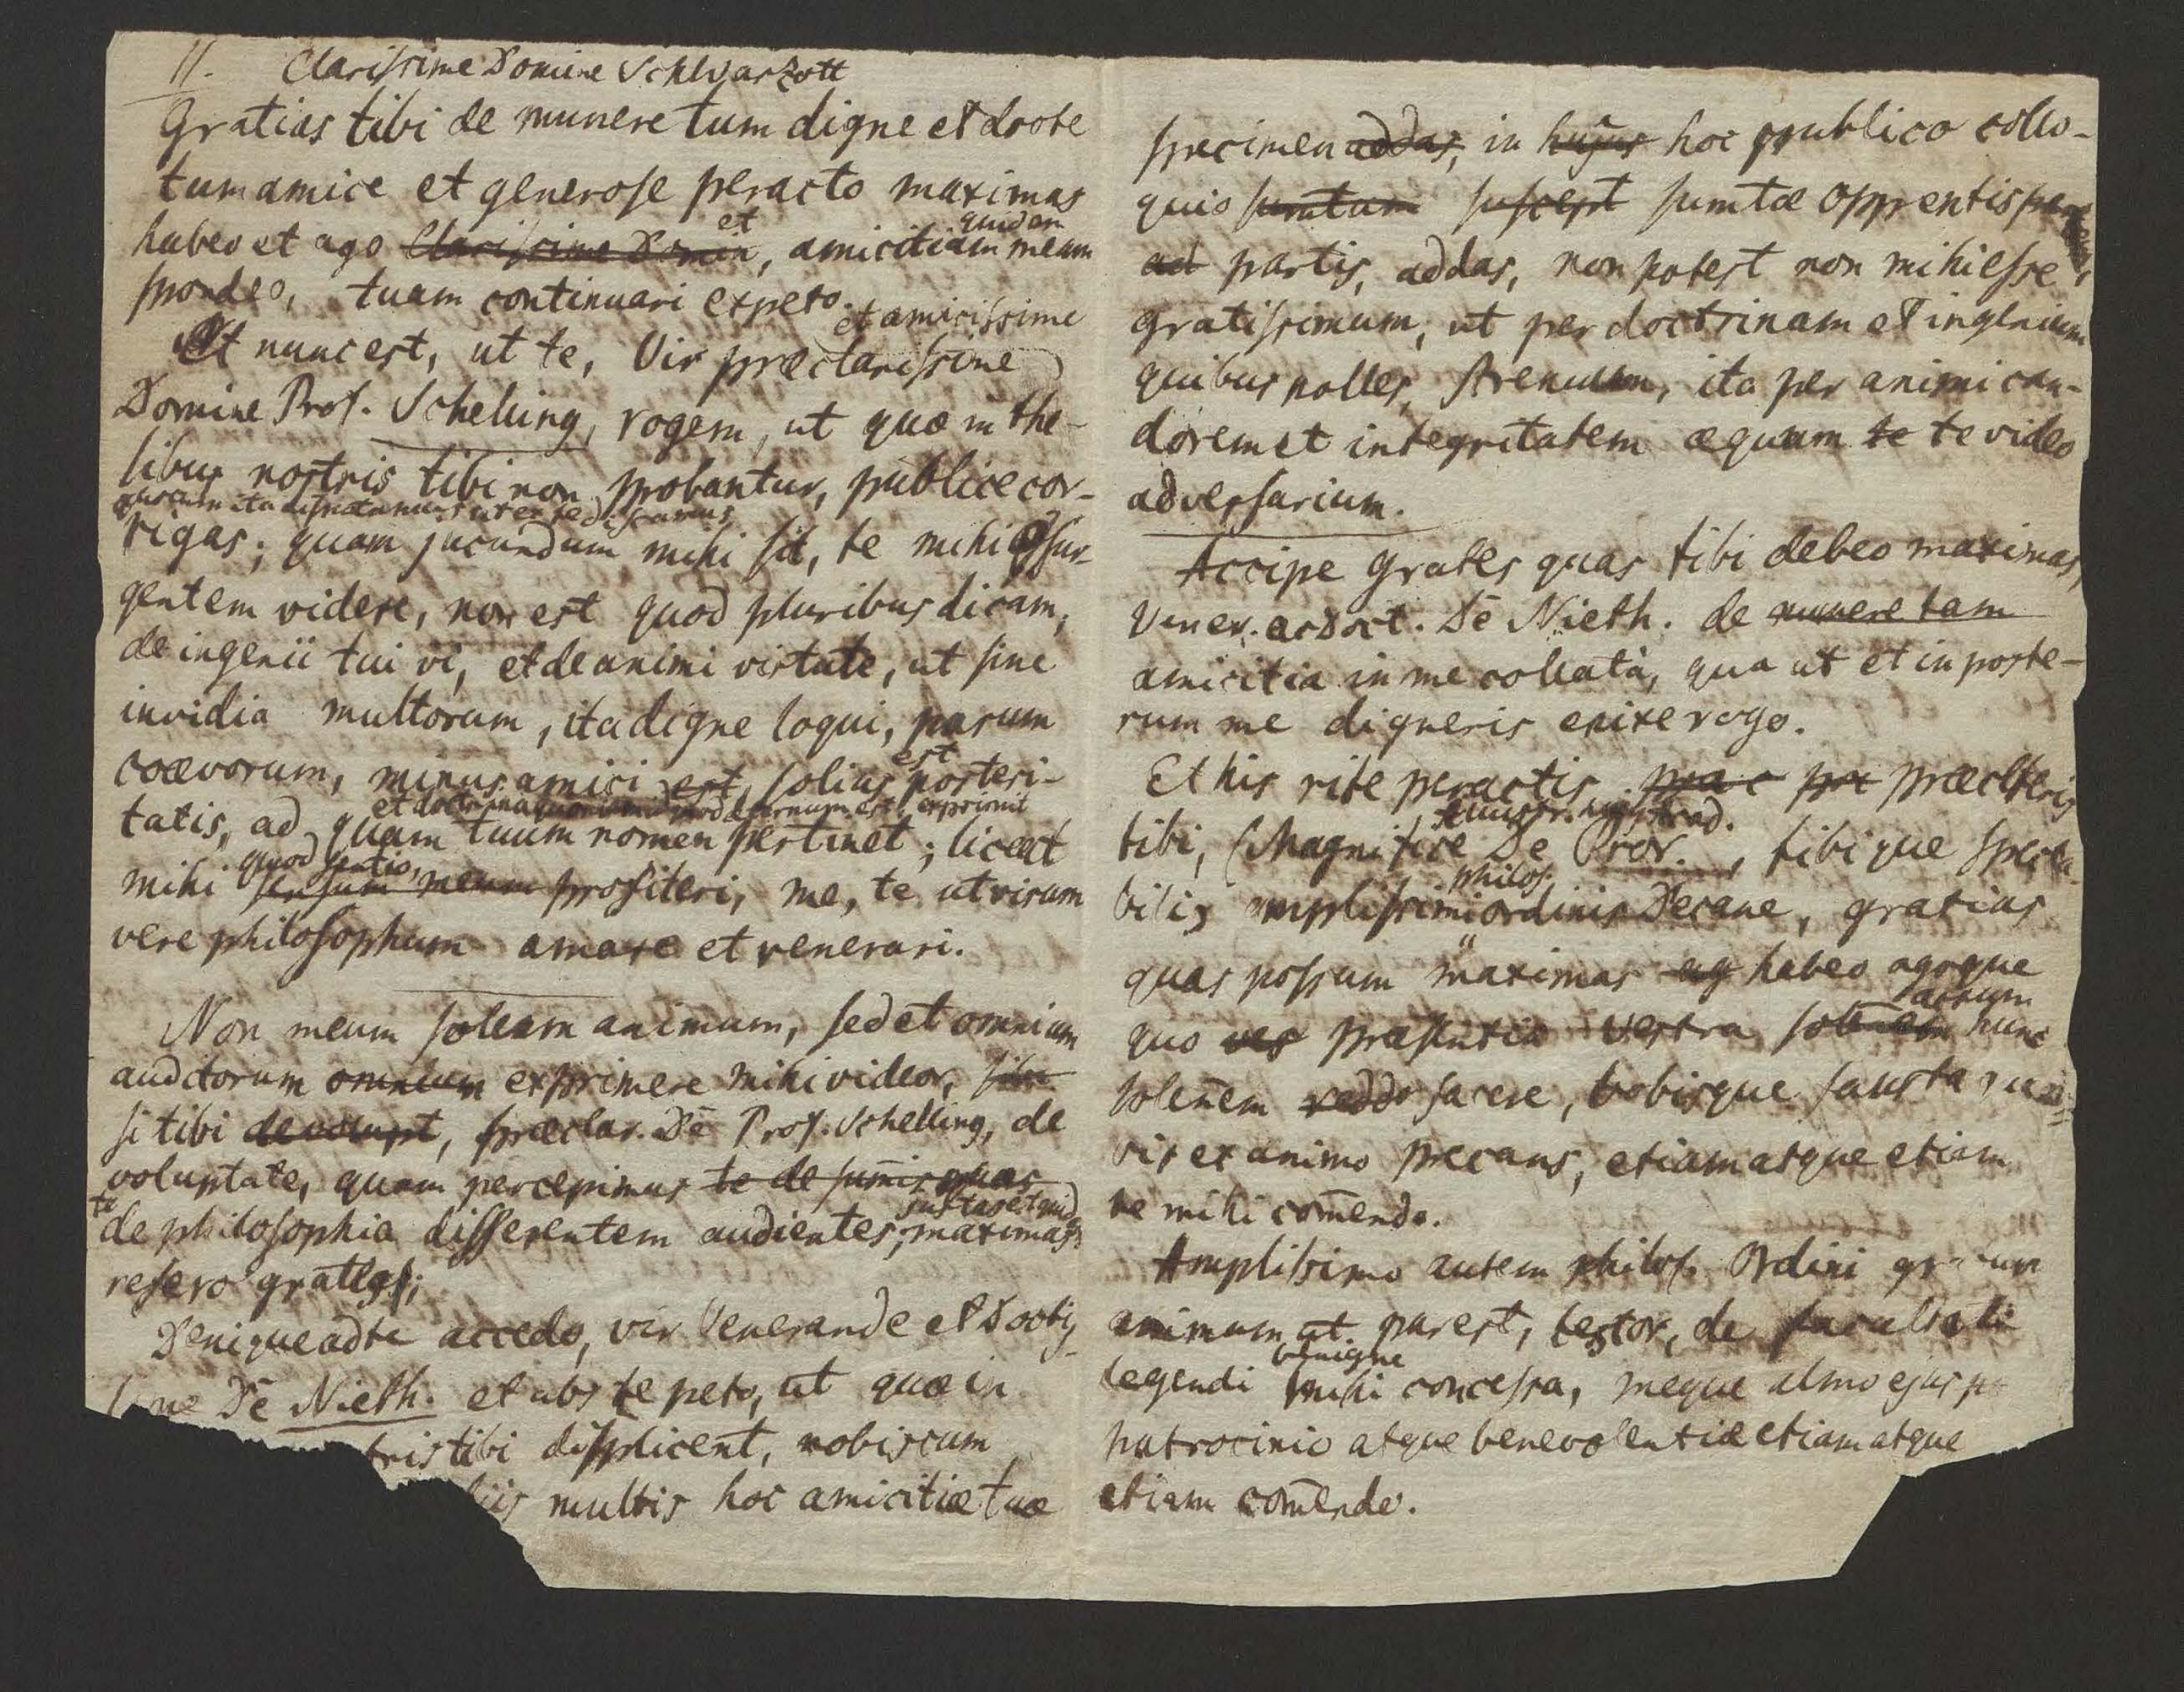 11. Clarissime Domine Schwarzott
Gratias tibi de munere tum digne et docte
tum amice et generose peracto maximas
et quidem
habeo et ago Clarissime Domin, amicitiam meam
spondeo, tuam continuari expeto.
et amicissime
Et nunc est, ut te, Vir præclarissime
Domine Prof. Schelling, rogem, ut quæ in the-
sibus nostris tibi non probantur, publice cor-
rigas; quam jucundum mihi sit, te mihi assur-
gentem videre, non est quod pluribus dicam,
de ingenii tui vi, et de animi virtute, ut sine
invidia multorum, ita digne loqui, parum
est
coævorum, minus amici est, solius posteri-
et doctrina exprimit
tatis, ad quam tuum nomen pertinet; liceat
quod sentio,
mihi sensum meum profiteri, me, te ut virum
vere philosophum amare et venerari.
Non meum solum animum, sed et omnium
auditorum omnium exprimere mihi videor,
si tibi de volupt, præclar. Dē Prof. Schelling, de
voluptate, quam percepimus te de sum̄is quas
te
de philosophia differentem audientes, maximas
refero grates;
Denique ad te accedo, vir Venerande et Doctis-
sime Dē Nieth. et abs te peto, ut quæ in
tris tibi displicent, nobiscum
liis multis hoc amicitiæ tuæ
specimen addas, in hujus hoc publico collo-
quio sumtum suscept sumtæ opponentis
ad partis, addas, non potest non mihi esse
gratissimum, ut per doctrinam et ingenium
quibus polles, strenuum, ita per animi can-
dorem et integritatem æquum te te video
adversarium.
Accipe grates quas tibi debeo maximas,
Vener. ac Doct. Dē Nieth. de munere tam
amicitia in me collatâ, qua ut et in poste-
rum me digneris enixe rogo.
Et his rite peractis præ
tibi, Magnifice De Pror., tibique specta-
philos.
bilis amplissimi ordinis Decane, gratias
quas possum maximas ag habeo agoque
actum
quo ves præsentia vestra solen̄em hunc
solen̄em reddo facere, vobisque fausta
vis ex animo precans, etiam atque etiam
me mihi com̄endo.
Amplissimo autem philos. Ordini gratum
animum ut par est, testor, de facultate
benigne
legendi mihi concessa, meque almo ejus
patrocinio atque benevolentiæ etiam atque
etiam com̄endo.